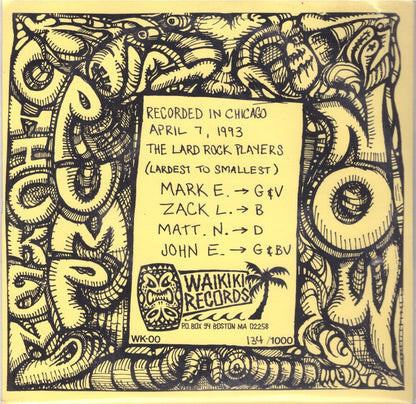 RECORDED IN CHICAGO
APRIL 7, 1993
THE LARD ROCK PLAYERS
(LARDEST TO SMALLEST)
MARK E. → G&V
ZACK L. → B
MATT. N. → D
JOHN E. → G&BV
WAIKIKI
RECORDS
P.O. BOX 94 BOSTON MA 02258
WK-00 134/1000